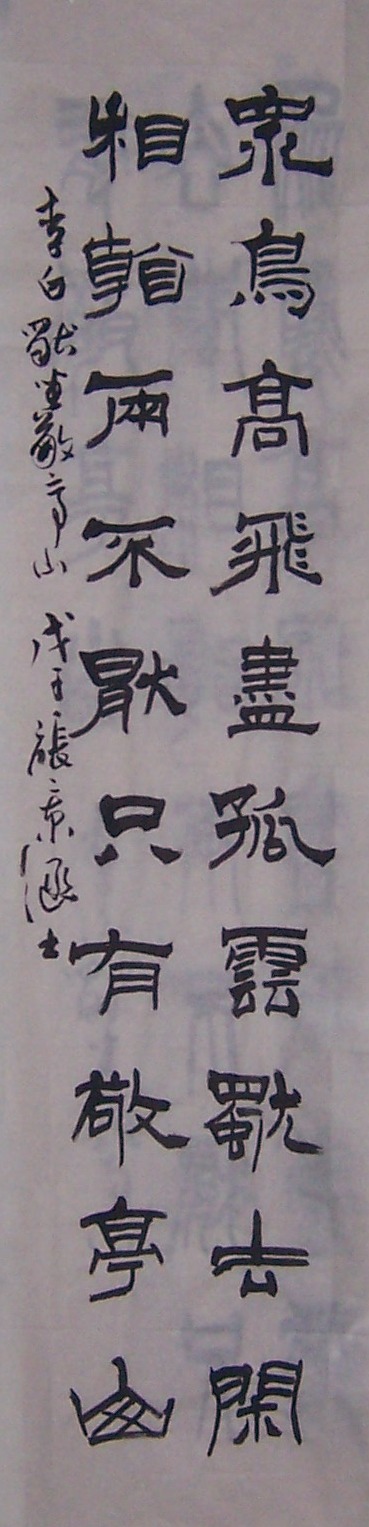 眾鳥高飛盡孤雲獨去閑
相看兩不猒只有敬亭山
李白獨坐敬亭山 戊子張景